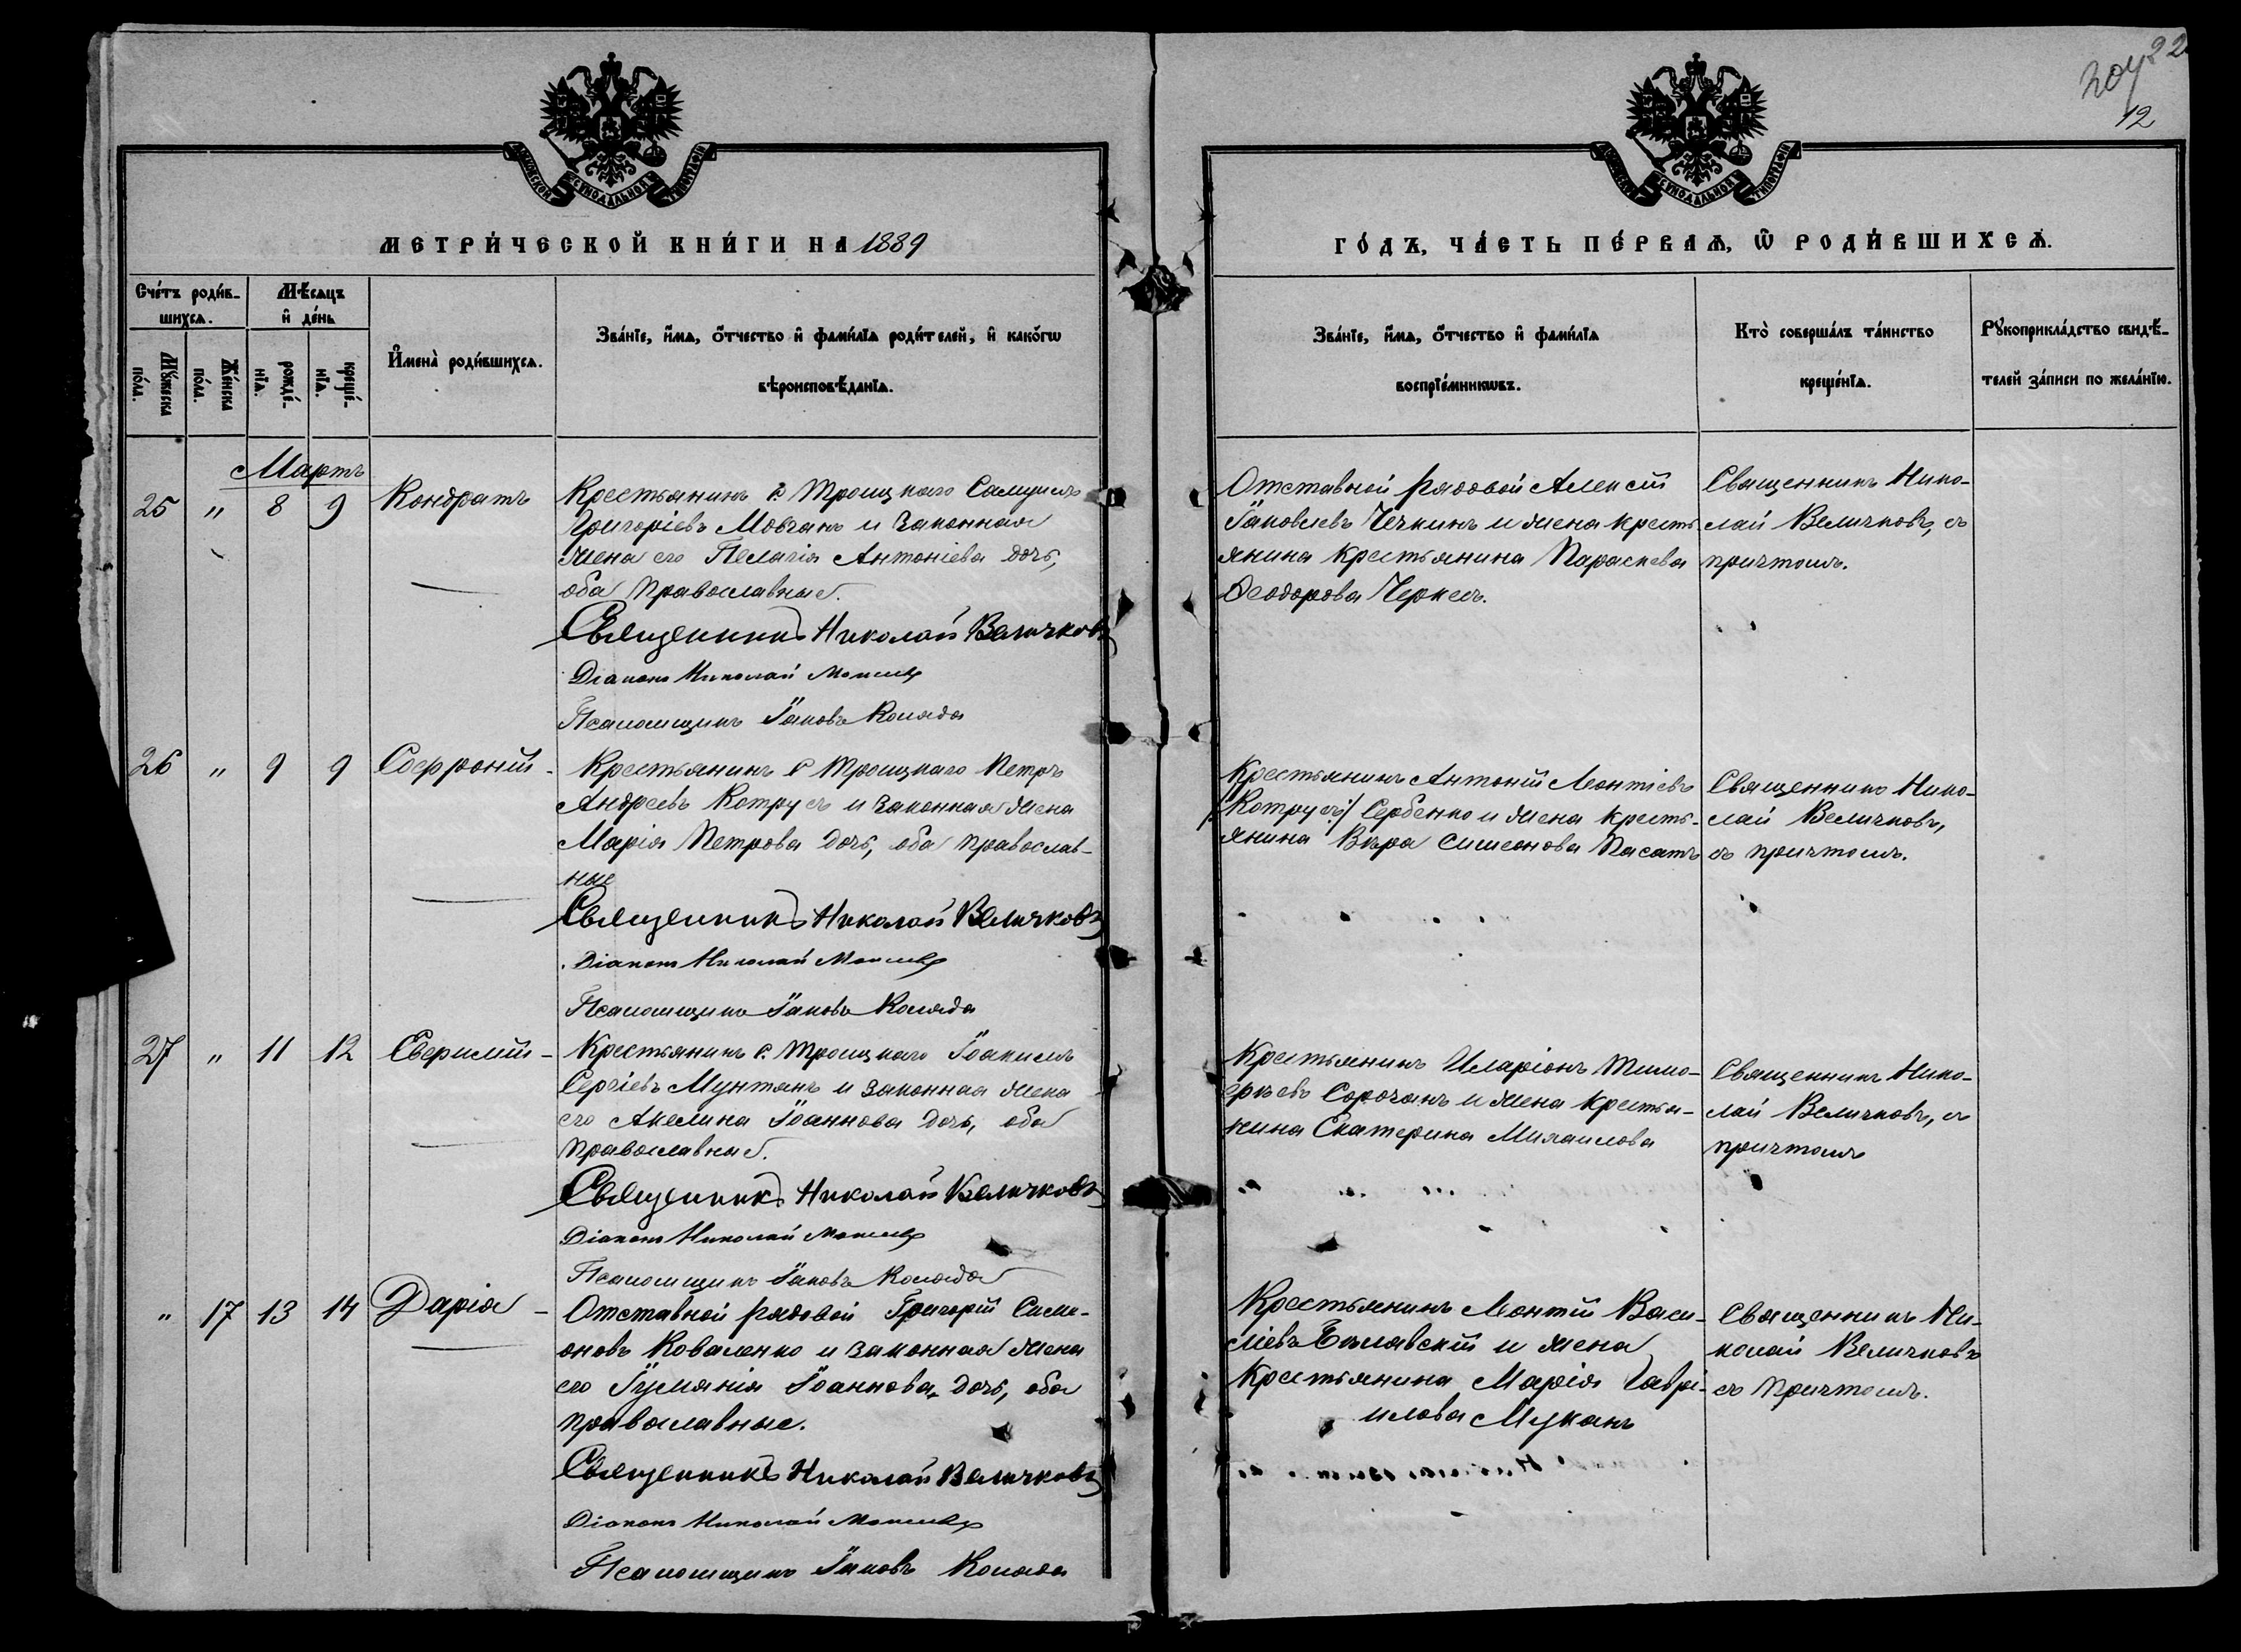 22
204
12
МОСКОВСКОЙ СѴНОДАЛЬНОЙ ТИПОГРАФІИ
МОСКОВСКОЙ СѴНОДАЛЬНОЙ ТИПОГРАФІИ
МЕТРИ́ЧЕСКОЙ КНИ́ГИ НА 1889
ГО́ДЪ, ЧА́СТЬ ПЕ́РВАѦ, Ѿ РОДИ́ВШИХСѦ.
Сче́тъ роди́в-
шихсѧ.
Мꙋ́жеска
по́ла.
Же́нска
по́ла.
Мѣ́сѧцъ
и҆ де́нь
рожде́-
нїѧ.
креще́-
нїѧ.
И҆мена̀ роди́вшихсѧ.
Зва́нїе, и҆́мѧ, ѻ҆́тчество и҆ фами́лїѧ роди́телей, и҆ како́гѡ
вѣроисповѣ́данїѧ.
Зва́нїе, и҆́мѧ, ѻ҆́тчество и҆ фами́лїѧ
воспрїе́мникѡвъ.
Кто̀ соверша́лъ та́инство
креще́нїѧ.
Рꙋкоприкла́дство свидѣ́-
телей за́писи по жела́нїю.
Мартъ
25 " 8 9 Кондратъ
Крестьянинъ с. Троицкаго Самуилъ
Григоріевъ Мовчанъ и законная
жена его Пелагія Антоніева дочь,
оба православные.
Священникъ Николай Величковъ
Діаконъ Николай
Псаломщикъ Іаковъ Коляда
Отставной рядовой Алексій
Іаковлевъ Чечкинъ и жена кресть
янина крестьянина Параскева
Ѳеодорова Черкесъ.
Священникъ Нико-
лай Величковъ, съ
причтомъ.
26 " 9 9 Софроній -
Крестьянинъ с Троицкаго Петръ
Андреевъ Котрусъ и законная жена
Марія Петрова дочь, оба православ-
ные
Священникъ Николай Величковъ
Діаконъ Николай
Псаломщикъ Іаковъ Коляда
Крестьянинъ Антоній Леонтіевъ
/Котрусъ/ Сербенко и жена кресть-
янина Вѣра Симеонова Пасатъ
Священникъ Нико-
лай Величковъ,
съ причтомъ.
27 " 11 12 Еверилій -
Крестьянинъ с. Троицкаго Іоакимъ
Сергіевъ Мунтянъ и законная жена
его Акелина Іоаннова дочь, оба
православные.
Священникъ Николай Величковъ
Діаконъ Николай
Псаломщикъ Іаковъ Коляда
Крестьянинъ Иларіонъ Тимо-
ѳеевъ Сорочанъ и жена крестья-
нина Екатерина Михаилова
Священникъ Нико-
лай Величковъ, съ
причтомъ
" 17 13 14 Дарія -
Отставной рядовой Григорій Симе-
оновъ Коваленко и законная жена
его Іуліанія Іоаннова дочь, оба
православные.
Священникъ Николай Величковъ
Діаконъ Николай
Псаломщикъ Іаковъ Коляда
Крестьянинъ Леонтій Васи-
ліевъ Бѣлявскій и жена
крестьянина Марія Гаврі-
илова Муканъ
Священникъ Ни-
колай Величковъ
съ причтомъ.